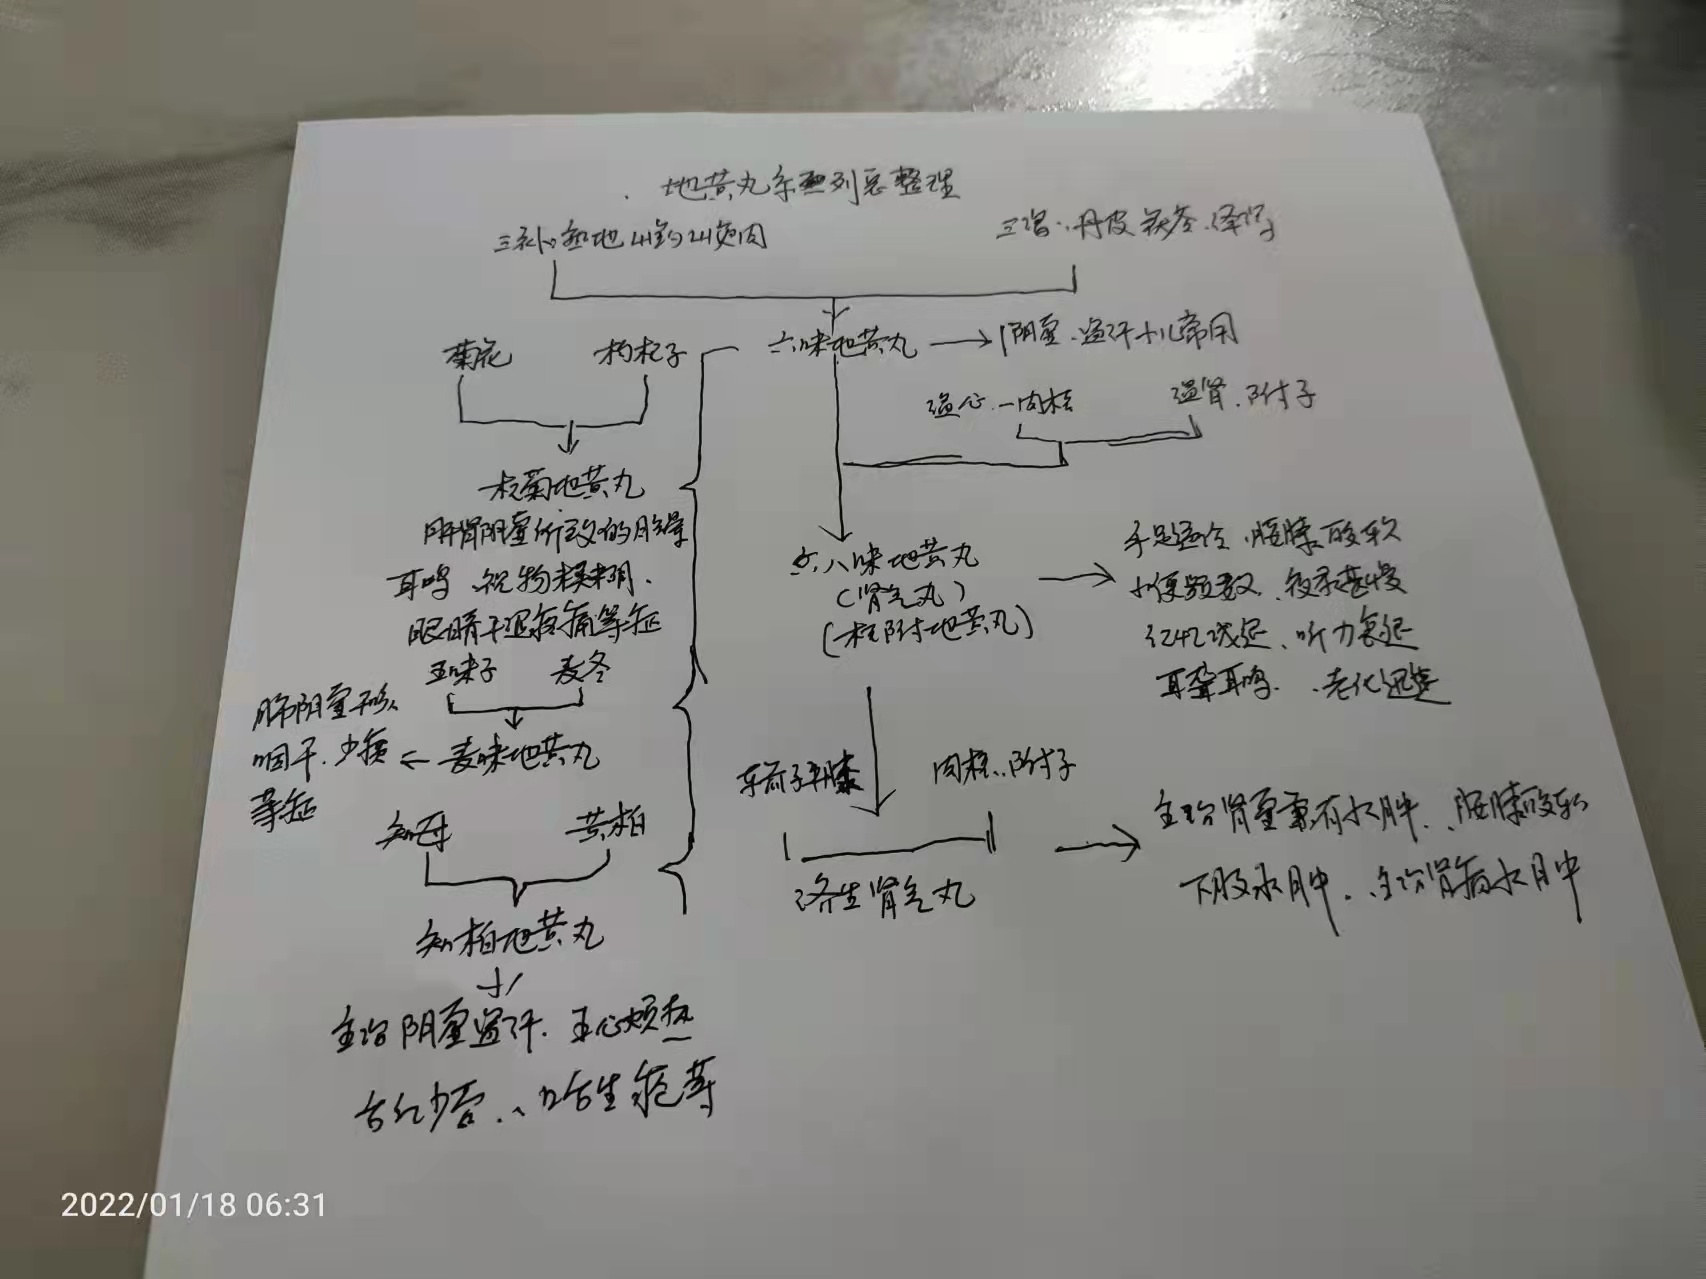 地黄丸系列总整理
三补:熟地 山药 山萸肉
三泻:丹皮 茯苓、泽泻
菊花
枸杞子
六味地黄丸
阴虚、盗汗小儿常用
温心—肉桂
温肾、附子
杞菊地黄丸
肝肾阴虚所致的眩晕
耳鸣、视物模糊、
眼睛干涩疼痛等症
八味地黄丸
(肾气丸)
(桂附地黄丸)
手足逆冷、腰膝酸软
小便频数、夜尿
记忆减退、听力衰退
耳聋耳鸣、老化迅速
五味子
麦冬
肺阴虚干咳、
咽干、少痰
等症
麦味地黄丸
知母
黄柏
车前子牛膝
肉桂、附子
济生肾气丸
主治肾虚兼有水肿、腰膝酸软
下肢水肿、主治肾病水肿
知柏地黄丸
主治阴虚盗汗、五心烦热
舌红少苔、口舌生疮等
2022/01/18 06:31